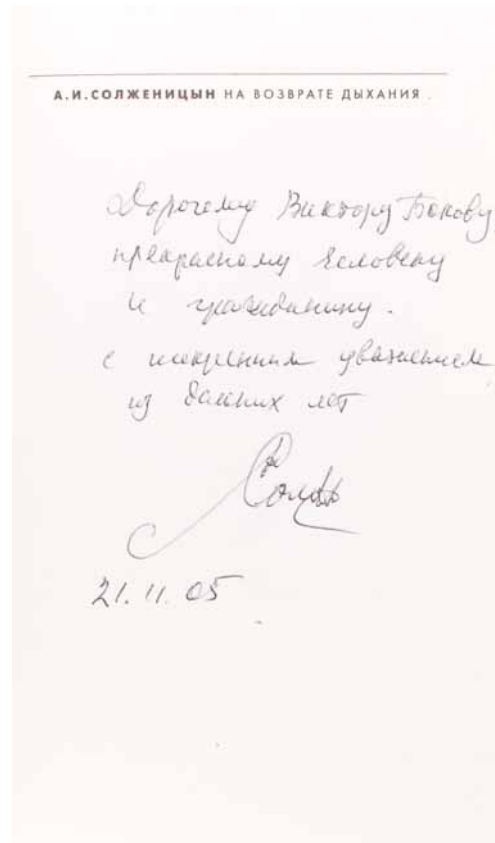 А.И.СОЛЖЕНИЦЫН НА ВОЗВРАТЕ ДЫХАНИЯ
Дорогому Виктору Бокову
прекрасному человеку
и гражданину.
с искренним уважением
из дальних лет
21.11.05